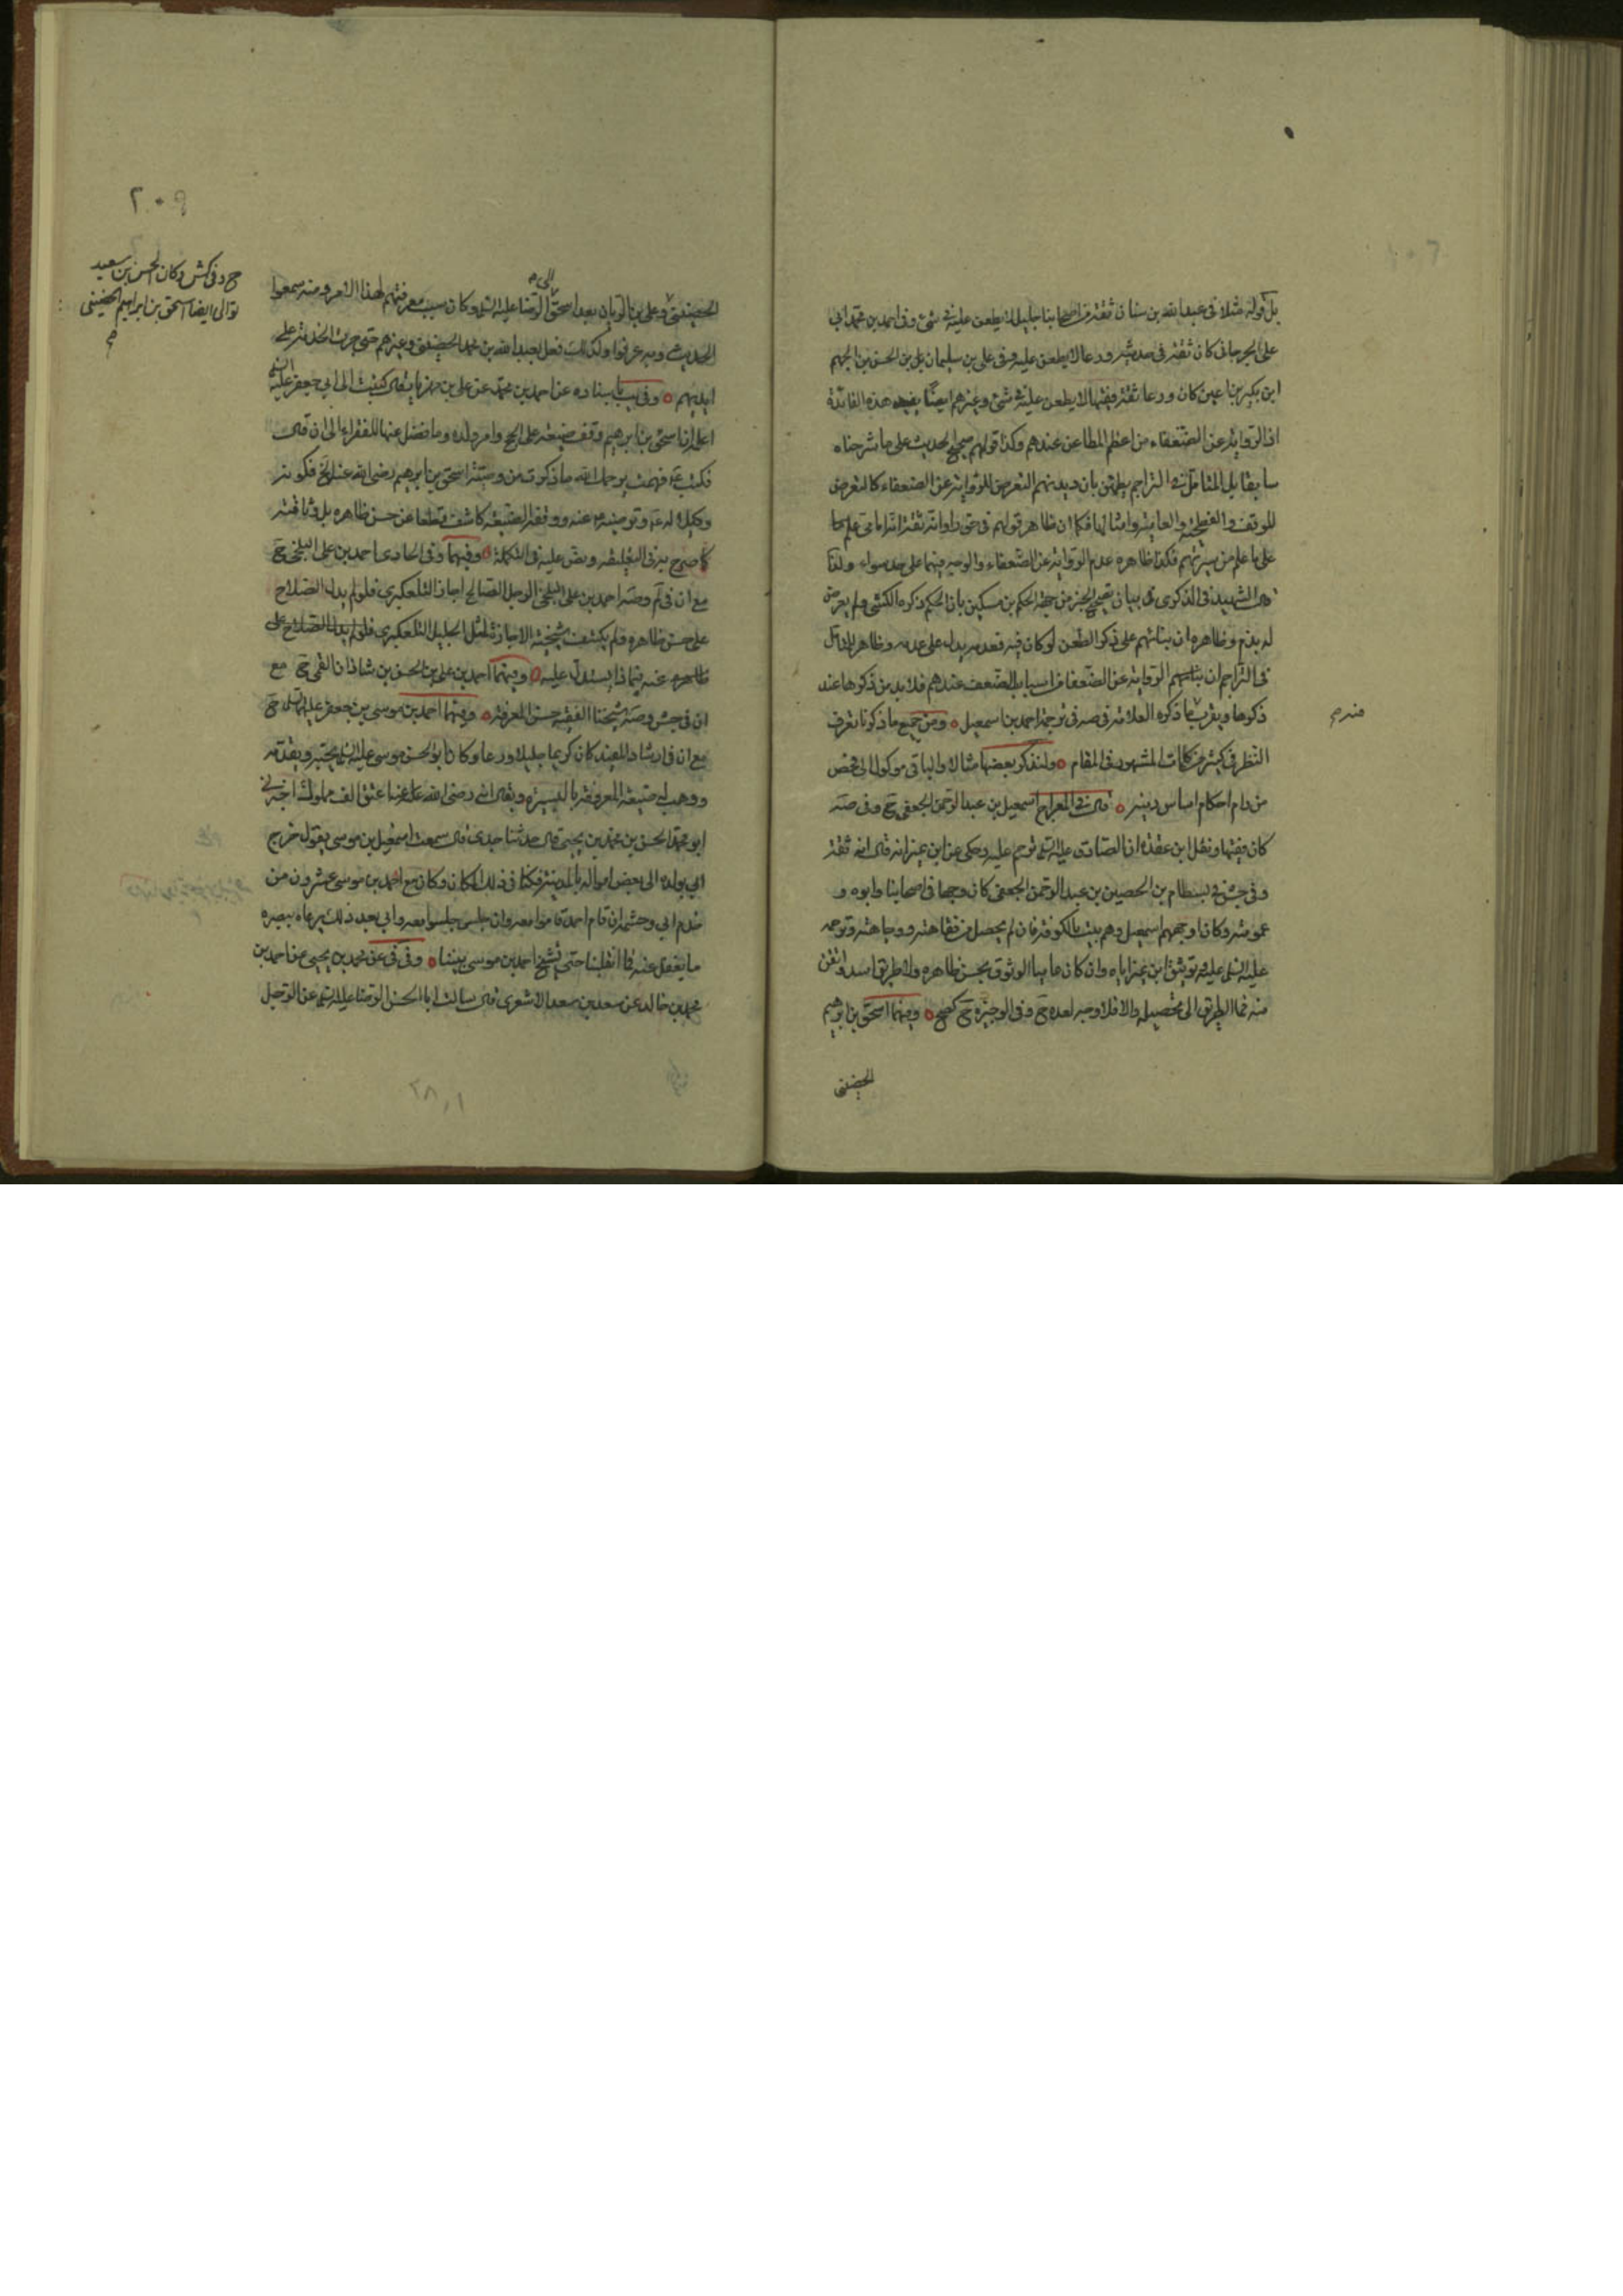 بل قوله مثلا في عبد الله بن سنان ثقة من اصحابنا جليل لا يطعن عليه في شئ وفي احمد بن محمد ابي
على الجرجاني كان ثقة في حديثه ورعا لا يطعن عليه وفي على بن سليمان بل بن الحسن بن الجهم
ابن بكير بن اعين كان ورعا ثقة فقيها لا يطعن عليه في شئ وغيرهم ايضا يفيد هذه الفائدة
اذ الرواية عن الضعفاء من اعظم المطاعن عندهم وكذا قولهم صحيح الحديث على ما شرحناه
سابقا بل المتامل في التراجم يطمئن بان ديدنهم التعرض للرواية عن الضعفاء كالتعرض
للوقف والفطحية والعامية وامثالها فكما ان ظاهر قولهم في حق راو انه ثقة انه امامي
على ما علم من سيرتهم فكذا ظاهره عدم الرواية عن الضعفاء والوجه فيهما على حد سواء ولذا
قال الشهيد في الذكرى في بيان تصحيح الخبر من جهة الحكم بن مسكين بان الحكم ذكره الكشي ولم يعرض
له بذم وظاهره ان بنائهم على ذكر الطعن لو كان فيه فعدمه يدل على عدمه وظاهر المتامل
في التراجم ان الرواية عن الضعفا من اسباب الضعف عندهم فلا بد من ذكرها عند
ذكرها ويقرب ما ذكره العلامة في صه في ترجمة احمد بن اسمعيل ومن جميع ما ذكرنا تعرف
النظر في كثير من كلمات المشهور في المقام ولنذكر بعضها مثالا والباقي موكول الى فحص
من رام احكام اساس دينه قال في المعراج اسمعيل بن عبد الرحمن الجعفي ح وفي صه
كان فقيها ونقل ابن عقدة ان الصادق عليه السلم ترحم عليه وحكى عن ابن نمير انه قال انه ثقة
وفي جش في بسطام بن الحصين بن عبد الرحمن الجعفي كان وجها في اصحابنا وابوه و
عمومته وكان اوجههم اسمعيل وهم بيت بالكوفة فان لم يحصل من فقاهته ووجاهته وترحمه
عليه السلم عليه وتوثيق ابن نمير اياه وان كان عاميا الوثوق بحسن ظاهره ولا طريق اسد واتقن
منه فما الطريق الى تحصيله والا فلا وجه لعده ح وفي الوجيزة ح كصح وفيهما اسحق بن ابرهيم
الحضيني
منه ره
٢٠٩
ح وفي كش وكان الحسن بن سعيد
توالى ايضا اسحق بن ابراهيم الحضيني
الحضيني وعلى بن الريان بعد اسحق الى الرضا عليه السلم وكان سبب معرفتهم لهذا الامر ومنه سمعوا
الحديث وبه عرفوا وكذلك فعل بعبد الله بن محمد الحضيني وغيرهم حتى جرت الخدمة على
ايديهم وفي يب باسناده عن احمد بن محمد عن على بن مهزيار قال كتبت الى ابي جعفر عليه السلم
اعلمه ان اسحق بن ابرهيم وقف ضيعته على الحج وام ولده وما فضل عنها للفقراء الى ان قال
فكتب ع فهمت يرحمك الله ما ذكرت من وصية اسحق بن ابرهيم رضى الله عنه الخ فكونه
وكيلا له ع وترضيه عنه ووقفه الضيعة كاشف قطعا عن حسن ظاهره بل وثاقته
كما صرح به في التعليقة ونص عليه في التكملة وفيهما وفي الحاوي احمد بن على البلخي ح
مع ان في لم وصه احمد بن على البلخي الرجل الصالح اجاز التلعكبري فلو لم يدل الصلاح
على حسن ظاهره ولم يكشف شيخية الاجازة لمثل الجليل التلعكبري فلو لم يدل الصلاح على
ظاهره عنه فبماذا يستدل عليه وفيهما احمد بن على بن الحسن بن شاذان القمي ح مع
ان في جش وصه شيخنا الفقيه حسن المعرفة وفيهما احمد بن موسى بن جعفر عليهما السلم ح
مع ان في ارشاد المفيد كان كريما جليلا ورعا وكان ابو الحسن موسى عليه السلم يحبه ويقدمه
ووهب له ضيعته المعروفة باليسيرة ويقال انه رضى الله عنه اعتق الف مملوك اخبرني
ابو محمد الحسن بن محمد بن يحيى قال حدثنا جدى قال سمعت اسمعيل بن موسى يقول خرج
ابي بولده الى بعض امواله بالمدينة فكنا في ذلك المكان وكان مع احمد بن موسى عشرون من
خدم ابي وحشمه ان قام احمد قاموا معه وان جلس جلسوا معه وابي بعد ذلك يرعاه ببصره
ما يغفل عنه فما انقلبنا حتى تشيخ احمد بن موسى بيننا وفي في عن محمد بن يحيى عن احمد بن
محمد بن خالد عن سعد بن سعد الاشعري قال سالت ابا الحسن الرضا عليه السلم عن الرجل